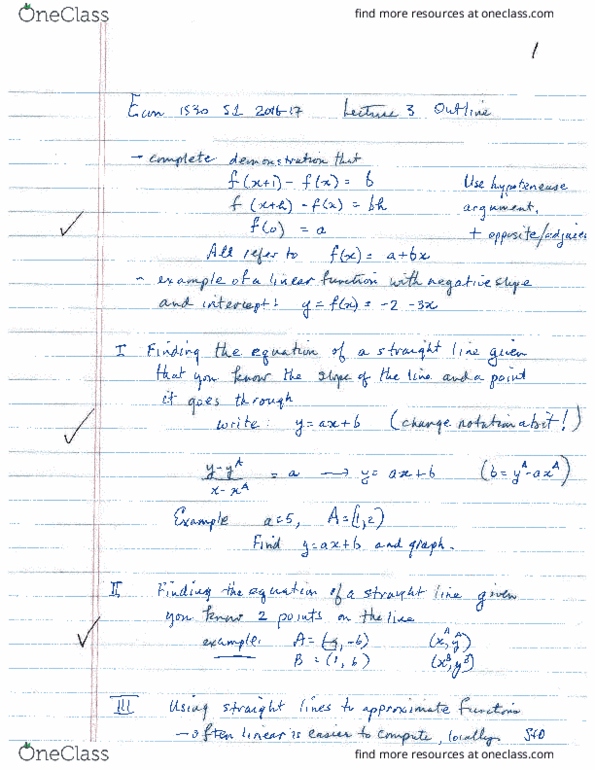 OneClass find more resources at oneclass.com
1
Econ 1530 S1 2016-17 Lecture 3 Outline
- complete demonstration that
f(x+1) - f(x) = b Use hypoteneuse
f(x+h) - f(x) = bh argument,
f(0) = a + opposite/adjacen
All refer to f(x) = a+bx
- example of a linear function with negative slope
and intercept: y = f(x) = -2 -3x
I Finding the equation of a straight line given
that you know the slope of the line and a point
it goes through
write: y = ax+b (change notation a bit!)
y-y^A / x-x^A = a → y = ax+b (b = y^A - ax^A)
Example a=5, A=(1,2)
Find y=ax+b and graph.
II Finding the equation of a straight line given
you know 2 points on the line
example: A = ( , -6) (x^A, y^A)
B = (1, 6) (x^B, y^B)
III Using straight lines to approximate functions
- often linear is easier to compute, locally
OneClass find more resources at oneclass.com